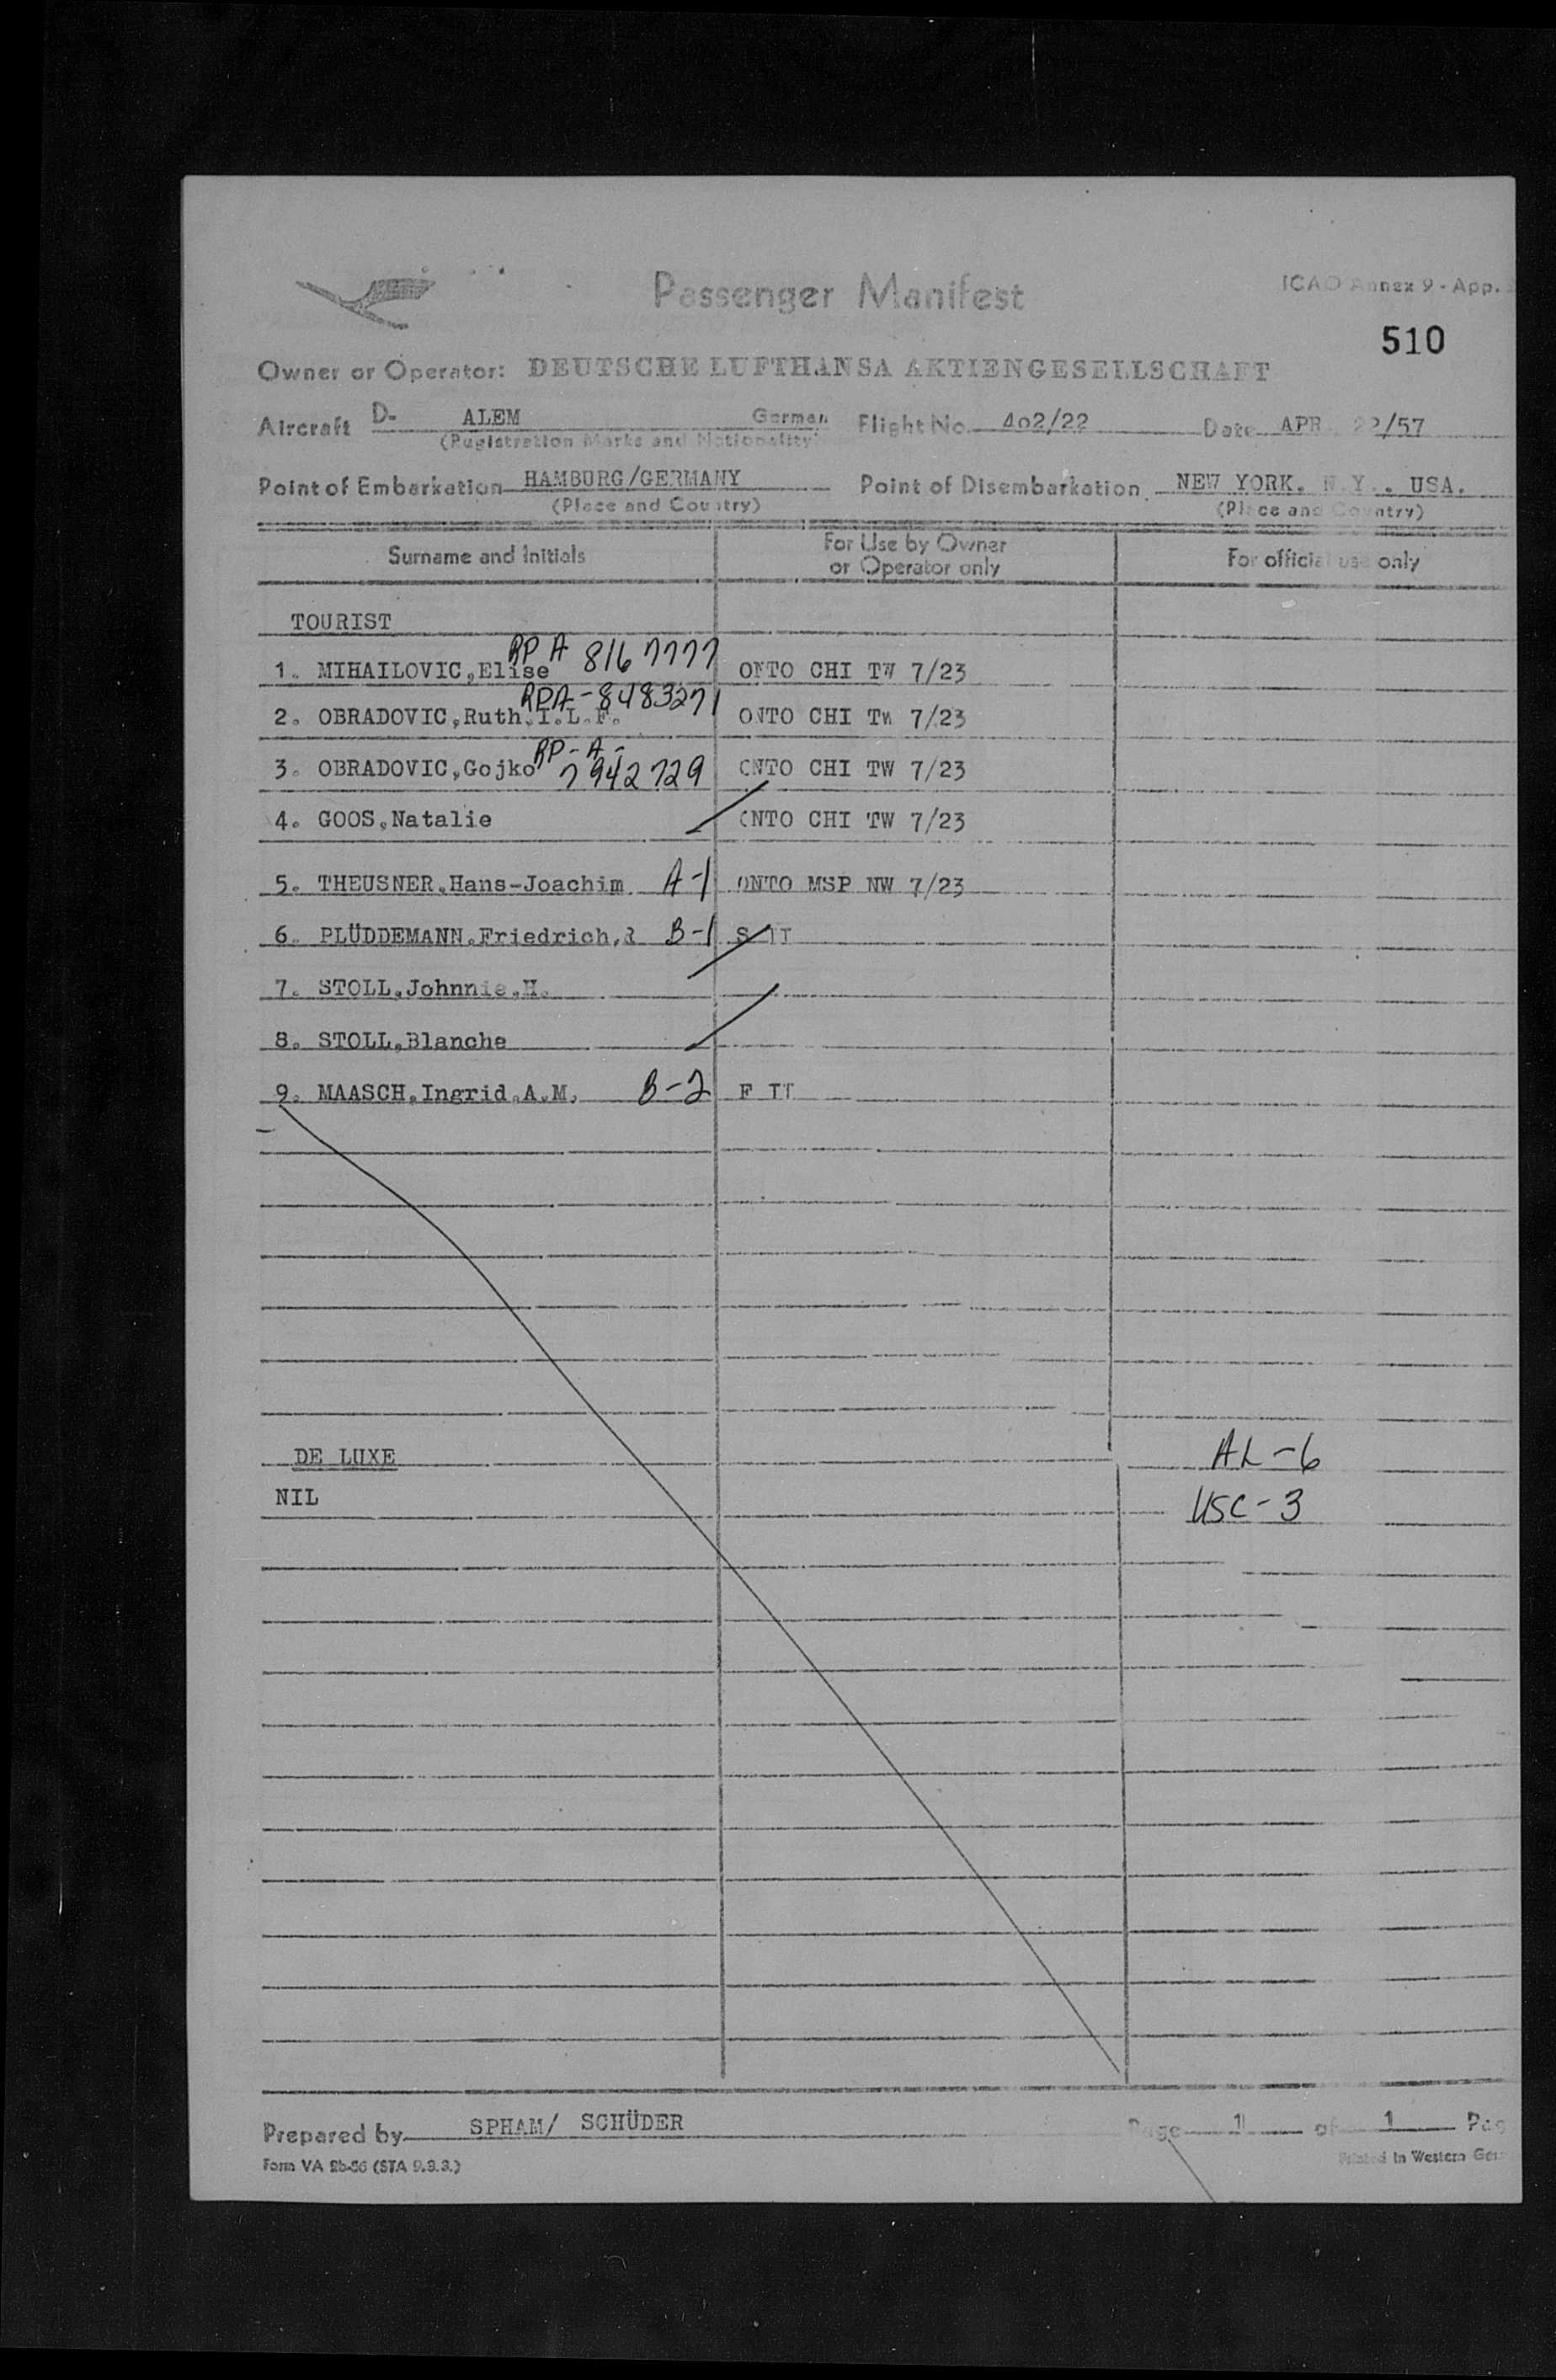 Passenger Manifest
ICAO Annex 9 - App.
510
Owner or Operator: DEUTSCHE LUFTHANSA AKTIENGESELLSCHAFT
Aircraft D- ALEM German Flight No. 402/22 Date APR. 22/57
(Registration Marks and Nationality)
Point of Embarkation HAMBURG/GERMANY Point of Disembarkation NEW YORK. N.Y.. USA.
(Place and Country) (Place and Country)
Surname and Initials For Use by Owner or Operator only For official use only
TOURIST
RP A 8167777
1. MIHAILOVIC,Elise ONTO CHI TW 7/23
RPA-8483271
2. OBRADOVIC,Ruth.I.L.F. ONTO CHI TW 7/23
RP-A-
3. OBRADOVIC,Gojko 7942729 ONTO CHI TW 7/23
4. GOOS,Natalie ONTO CHI TW 7/23
5. THEUSNER,Hans-Joachim. A-1 ONTO MSP NW 7/23
6. PLÜDDEMANN,Friedrich,R B-1
7. STOLL,Johnnie.H.
8. STOLL,Blanche
9. MAASCH,Ingrid.A.M. B-2 F
DE LUXE AL-6
NIL USC-3
Prepared by SPHAM/ SCHÜDER Page 1 of 1 Pag
Form VA 2b-56 (STA 9.3.3.) Printed in Western Ger